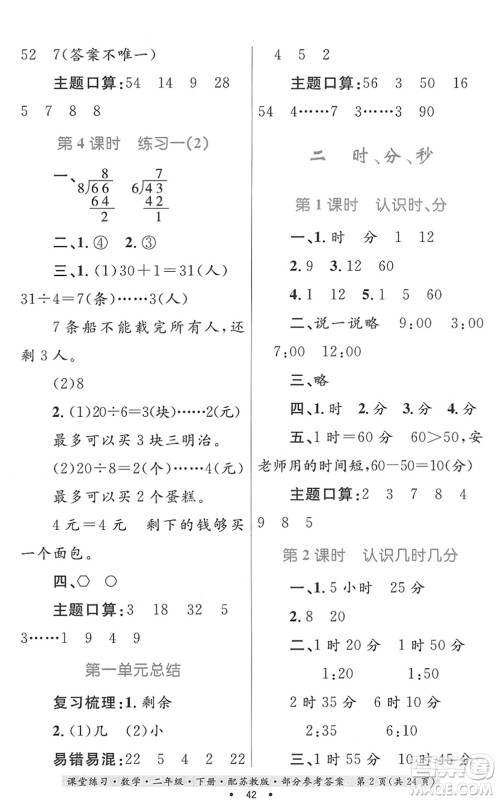 52　7(答案不唯一)
主题口算:54　14　9　28
5　7　8　8
第 4 课时　练习一(2)
一、
8
8)66
64
2
7
6)43
42
1
二、1.④　2.③
三、1.(1)30＋1＝31(人)
31÷4＝7(条)……3(人)
7 条船不能载完所有人,还
剩 3 人。
(2)8
2.(1)20÷6＝3(块)……2(元)
最多可以买 3 块三明治。
(2)20÷8＝2(个)……4(元)
最多可以买 2 个蛋糕。
4 元＝4 元　剩下的钱够买
一个面包。
四、⬡　○
主题口算:3　18　32　5
3……1　9　4　9
第一单元总结
复习梳理:1.剩余
2.(1)几　(2)小
易错易混:
4　5　2
主题口算:56　3　50　16
54　4……7　3……3　90
二　时、分、秒
第 1 课时　认识时、分
一、1.时　分　1　12
2.9　3.12　60
4.1　12　5.1　60
二、说一说略　9:00　3:00
7:00　12:00
三、略
四、1.时　2.分　3.分　4.分
五、1 时＝60 分　60＞50,安
老师用的时间短,60－50＝10(分)
主题口算:2　3　7　8　4
9　8　5
第 2 课时　认识几时几分
一、1.5 小时　25 分
2.8　20
二、1 时 20 分　1 时 50 分
1:20　1:50
三、1 时 25 分　2 时 40 分
课堂练习·数学·二年级·下册·配苏教版·部分参考答案　第 2 页(共 24 页)
42